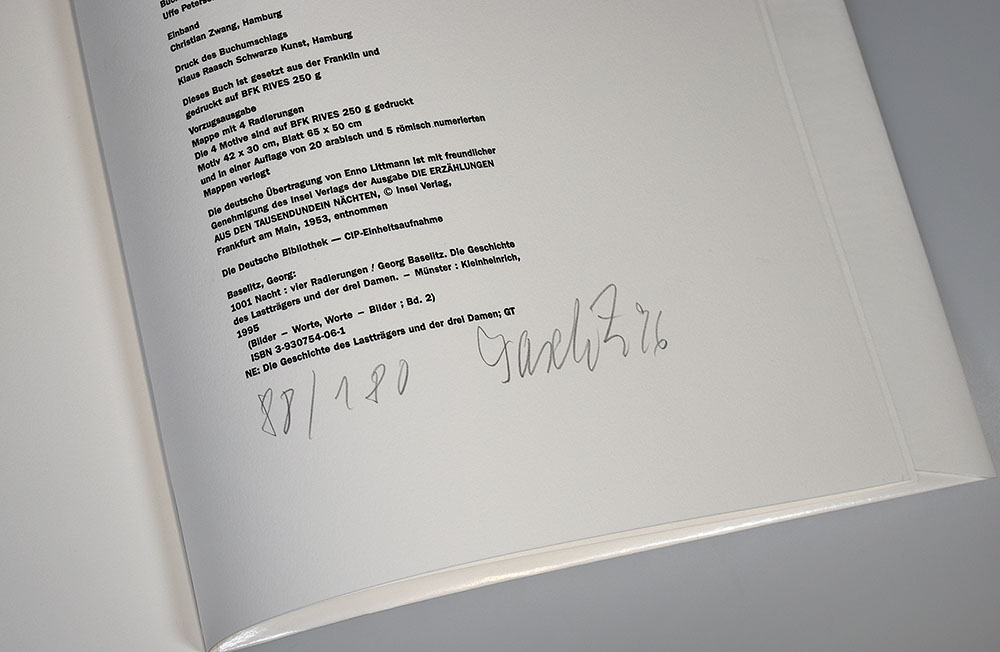 Uffe Peterse
Einband
Christian Zwang, Hamburg
Druck des Buchumschlags
Klaus Raasch Schwarze Kunst, Hamburg
Dieses Buch ist gesetzt aus der Franklin und
gedruckt auf BFK RIVES 250 g
Vorzugsausgabe
Mappe mit 4 Radierungen
Die 4 Motive sind auf BFK RIVES 250 g gedruckt
Motiv 42 x 30 cm, Blatt 65 x 50 cm
und in einer Auflage von 20 arabisch und 5 römisch numerierten
Mappen verlegt
Die deutsche Übertragung von Enno Littmann ist mit freundlicher
Genehmigung des Insel Verlags der Ausgabe DIE ERZÄHLUNGEN
AUS DEN TAUSENDUNDEIN NÄCHTEN, © Insel Verlag,
Frankfurt am Main, 1953, entnommen
Die Deutsche Bibliothek — CIP-Einheitsaufnahme
Baselitz, Georg:
1001 Nacht : vier Radierungen / Georg Baselitz. Die Geschichte
des Lastträgers und der drei Damen. – Münster : Kleinheinrich,
1995
(Bilder – Worte, Worte – Bilder ; Bd. 2)
ISBN 3-930754-06-1
NE: Die Geschichte des Lastträgers und der drei Damen; GT
88/180 Baselitz 96